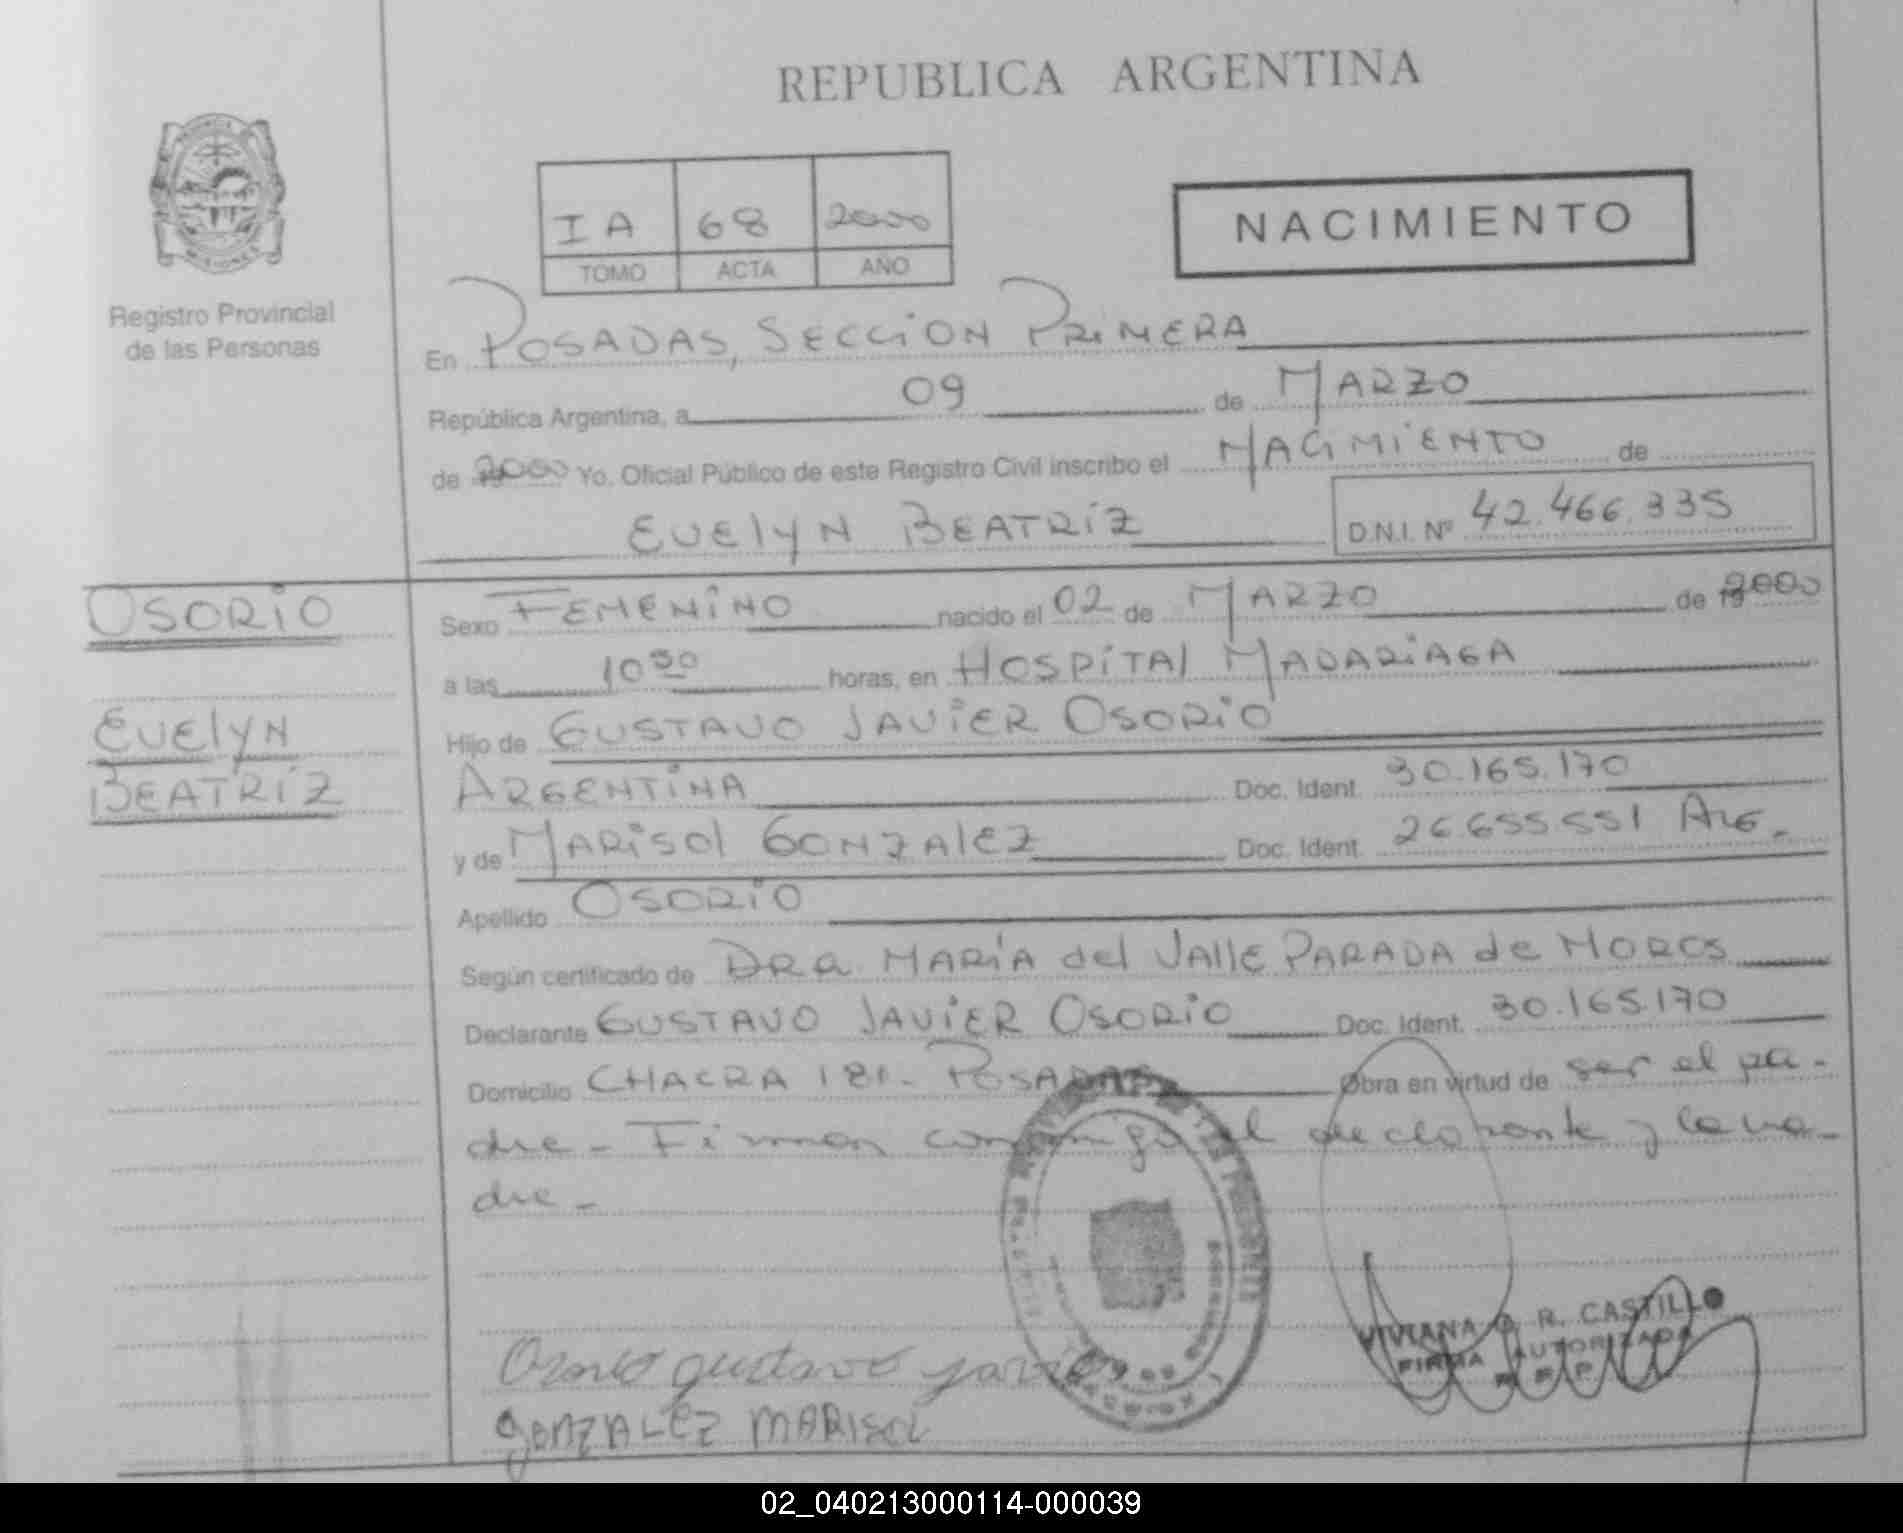 REPUBLICA ARGENTINA
IA 68 2000
TOMO ACTA AÑO
NACIMIENTO
Registro Provincial
de las Personas
En POSADAS, SECCION PRIMERA
República Argentina, a 09 de MARZO
de 2000 Yo. Oficial Público de este Registro Civil inscribo el NACIMIENTO de
EVElYN BEATRIZ D.N.I. Nº 42.466.335
OSORIO
EVElYN
BEATRIZ
Sexo FEMENINO nacido el 02 de MARZO de 2000
a las 10 30 horas, en HOSPITAl MADARIAGA
Hijo de GUSTAVO JAVIER OSORIO
ARGENTINA Doc. Ident. 30.165.170
y de MARISOl GONZAlEZ Doc. Ident. 26.655.551 ARG.
Apellido OSORIO
Según certificado de DRa. MARÍA del VAllE PARADA de
Declarante GUSTAVO JAVIER OSORIO Doc. Ident. 30.165.170
Domicilio CHACRA 181- POSADAS Obra en virtud de ser el pa-
dre - Firman conmigo el declarante y la ma-
dre -
VIVIANA R. CASTILLO
FIRMA AUTORIZADA
R. P. P.
Osorio gustavo javier
GONZALEZ MARISOL
02_040213000114-000039